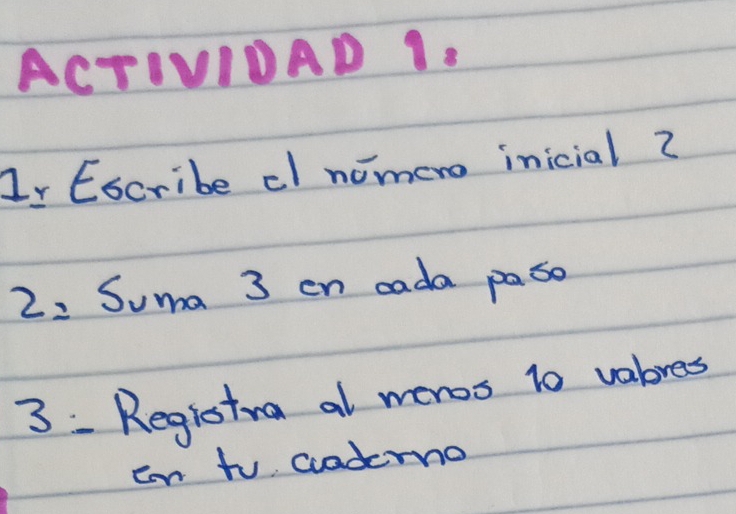 ACTIVIDAD 1:
1: Escribe el número inicial 2
2: Suma 3 en cada paso
3: Registra al menos 10 valores
en tu cuaderno